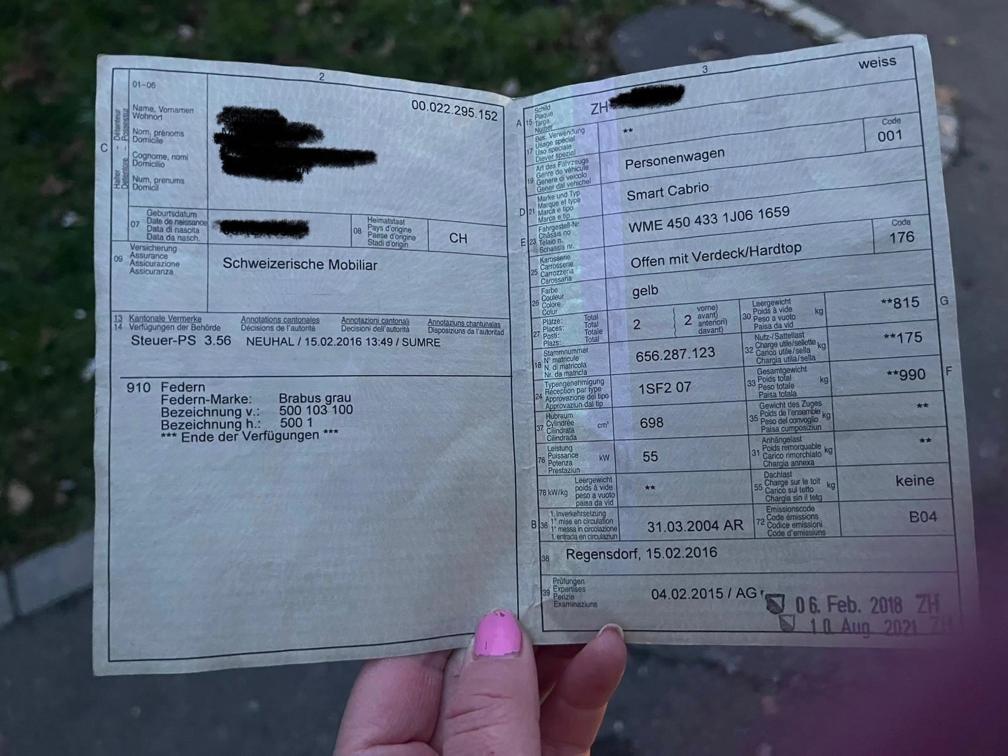 2
01-06
00.022.295.152
C
Halter
Name, Vornamen
Wohnort
Nom, prénoms
Domicile
Cognome, nomi
Domicilio
Num, prenums
Domicil
07
Geburtsdatum
Date de naissance
Data di nascita
Data da nasch.
08
Heimatstaat
Pays d'origine
Paese d'origine
Stadi d'origin
CH
09
Versicherung
Assurance
Assicurazione
Assicuranza
Schweizerische Mobiliar
13 Kantonale Vermerke Annotations cantonales Annotazioni cantonali Annotaziuns chantunalas
14 Verfügungen der Behörde Décisions de l'autorité Decisioni dell'autorità Disposiziuns da l'autoritad
Steuer-PS 3.56 NEUHAL / 15.02.2016 13:49 / SUMRE
910 Federn
Federn-Marke: Brabus grau
Bezeichnung v.: 500 103 100
Bezeichnung h.: 500 1
*** Ende der Verfügungen ***
3
A 15
Schild
Plaque
Targa
ZH
weiss
17
Bes. Verwendung
Usage spécial
Uso speciale
Diever spezial
**
19
Art des Fahrzeugs
Genre de véhicule
Genere di veicolo
Gener dal vehichel
Personenwagen
Code
001
D 21
Marke und Typ
Marque et type
Marca e tipo
Marca e tip
Smart Cabrio
E 23
Fahrgestell-Nr.
Châssis no
Telaio n.
Schassis nr.
WME 450 433 1J06 1659
25
Karosserie
Carrosserie
Carrozzeria
Carossaria
Offen mit Verdeck/Hardtop
Code
176
26
Farbe
Couleur
Colore
Colur
gelb
27
Plätze: Total
Places: Total
Posti: Totale
Plazs: Total
2
2
vorne)
avant)
anteriori)
davant)
30
Leergewicht
Poids à vide
Peso a vuoto
Paisa da vid
kg
**815
G
18
Stammnummer
N° matricule
N. di matricola
Nr. da matricla
656.287.123
32
Nutz-/Sattellast
Charge utile/sellette
Carico utile/sella
Chargia utila/sella
kg
**175
24
Typengenehmigung
Réception par type
Approvazione del tipo
Approvaziun dal tip
1SF2 07
33
Gesamtgewicht
Poids total
Peso totale
Paisa totala
kg
**990
F
37
Hubraum
Cylindrée
Cilindrata
Cilindrada
cm³
698
35
Gewicht des Zuges
Poids de l'ensemble
Peso del convoglio
Paisa cumposiziun
kg
**
76
Leistung
Puissance
Potenza
Prestaziun
kW
55
31
Anhängelast
Poids remorquable
Carico rimorchiato
Chargia annexa
kg
**
78 kW/kg
Leergewicht
poids à vide
peso a vuoto
paisa da vid
**
55
Dachlast
Charge sur le toit
Carico sul tetto
Chargia sin il tetg
kg
keine
B 36
1. Inverkehrsetzung
1re mise en circulation
1a messa in circolazione
1. entrada en circulaziun
31.03.2004 AR
72
Emissionscode
Code émissions
Codice emissioni
Code d'emissiuns
B04
38
Regensdorf, 15.02.2016
39
Prüfungen
Expertises
Perizie
Examinaziuns
04.02.2015 / AG
06. Feb. 2018 ZH
10. Aug. 2021 ZH